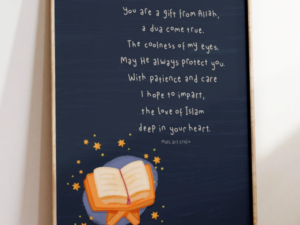 You are a gift from Allah,
a dua come true.
The coolness of my eyes.
May He always protect you.
With patience and care
I hope to impart,
the love of Islam
deep in your heart.